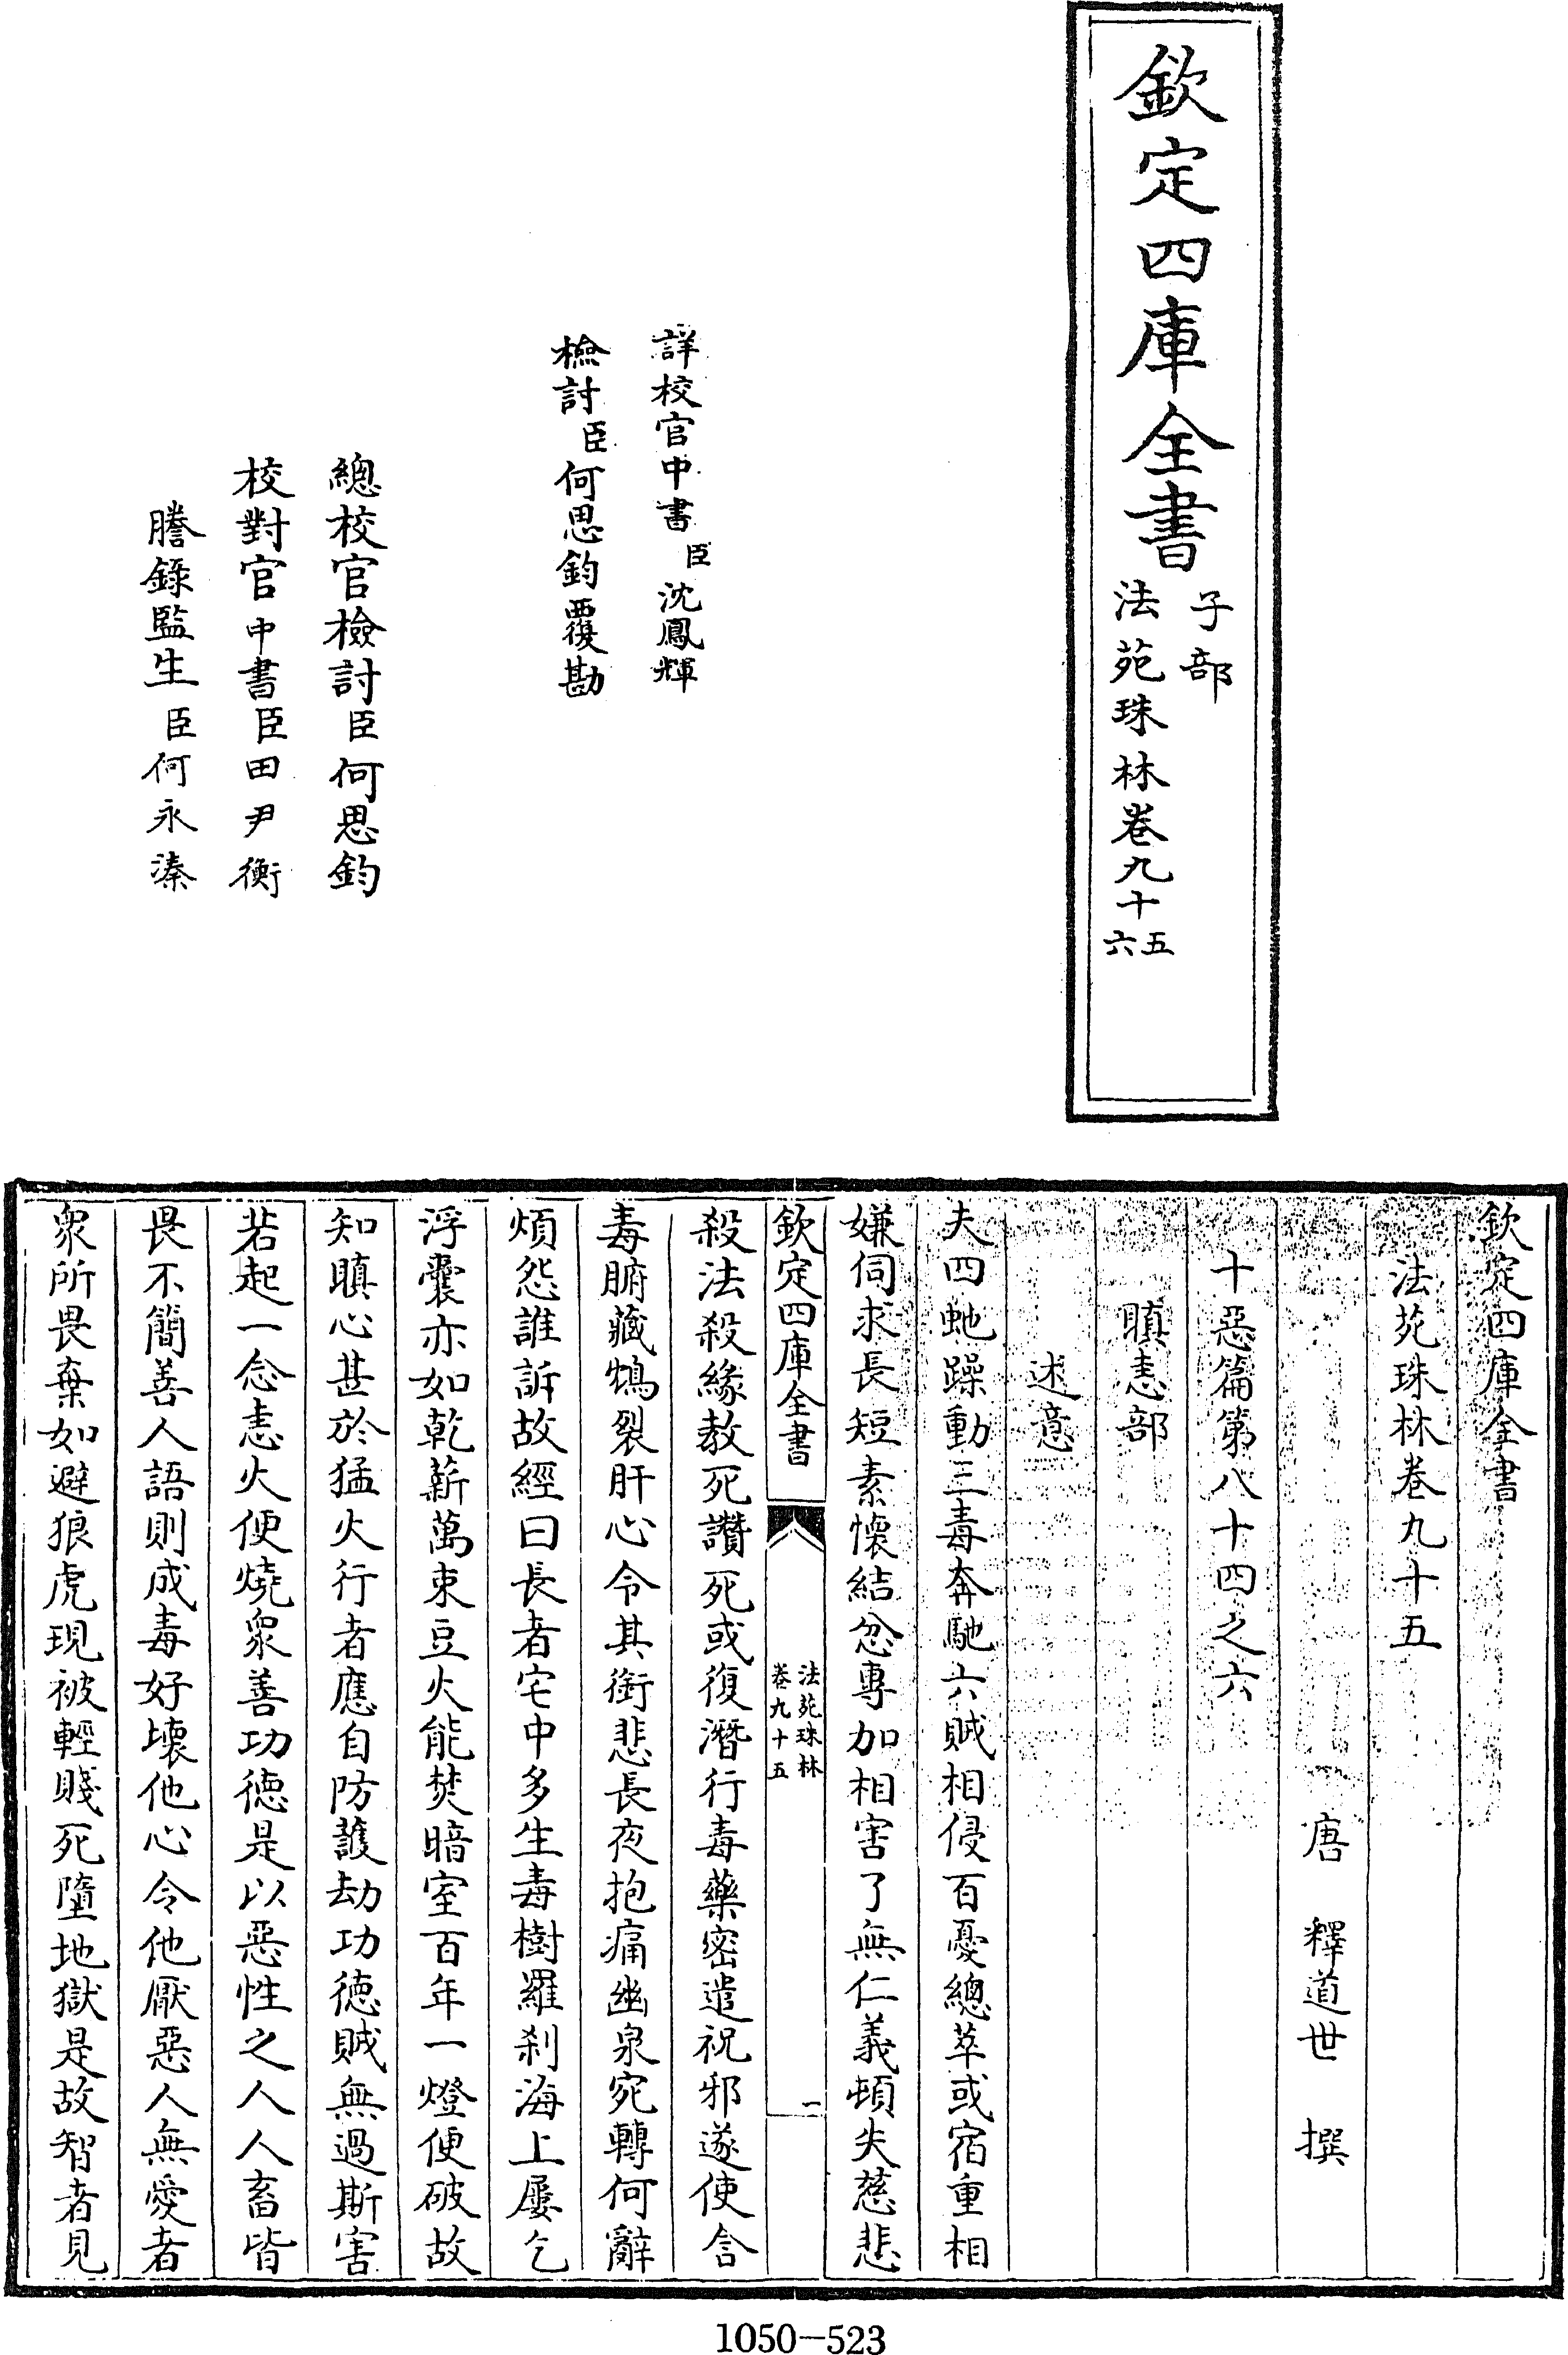 欽定四庫全書
子部
法苑珠林卷九十五
六
詳校官中書臣沈鳳輝
檢討臣何思鈞覆勘
總校官檢討臣何思鈞
校對官中書臣田尹衡
謄錄監生臣何永溱
欽定四庫全書
法苑珠林卷九十五
唐 釋道世 撰
十惡篇第八十四之六
瞋恚部
述意
夫四虵躁動三毒奔馳六賊相侵百憂總萃或宿重相
嫌伺求長短素懷結忿專加相害了無仁義頓失慈悲
欽定四庫全書
法苑珠林
卷九十五
一
殺法殺緣教死讚死或復潛行毒藥密遣祝邪遂使含
毒腑藏鴆裂肝心令其銜悲長夜抱痛幽泉宛轉何辭
煩怨誰訴故經曰長者宅中多生毒樹羅刹海上屢乞
浮囊亦如乾薪萬束豆火能焚暗室百年一燈便破故
知瞋心甚於猛火行者應自防護劫功德賊無過斯害
若起一念恚火便燒衆善功德是以惡性之人人畜皆
畏不簡善人語則成毒好壞他心令他厭惡人無愛者
衆所畏棄如避狼虎現被輕賤死墮地獄是故智者見
1050-523